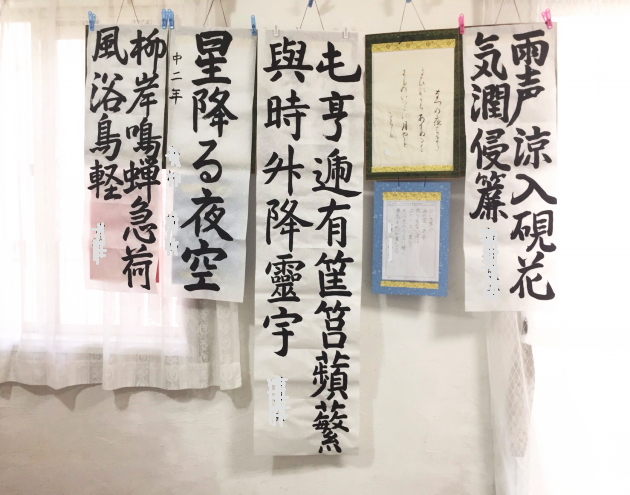 雨声涼入硯花
気潤侵簾
屯亨遞有筐筥蘋蘩
與時升降靈宇
星降る夜空
中二年
柳岸鳴蝉急荷
風浴鳥軽